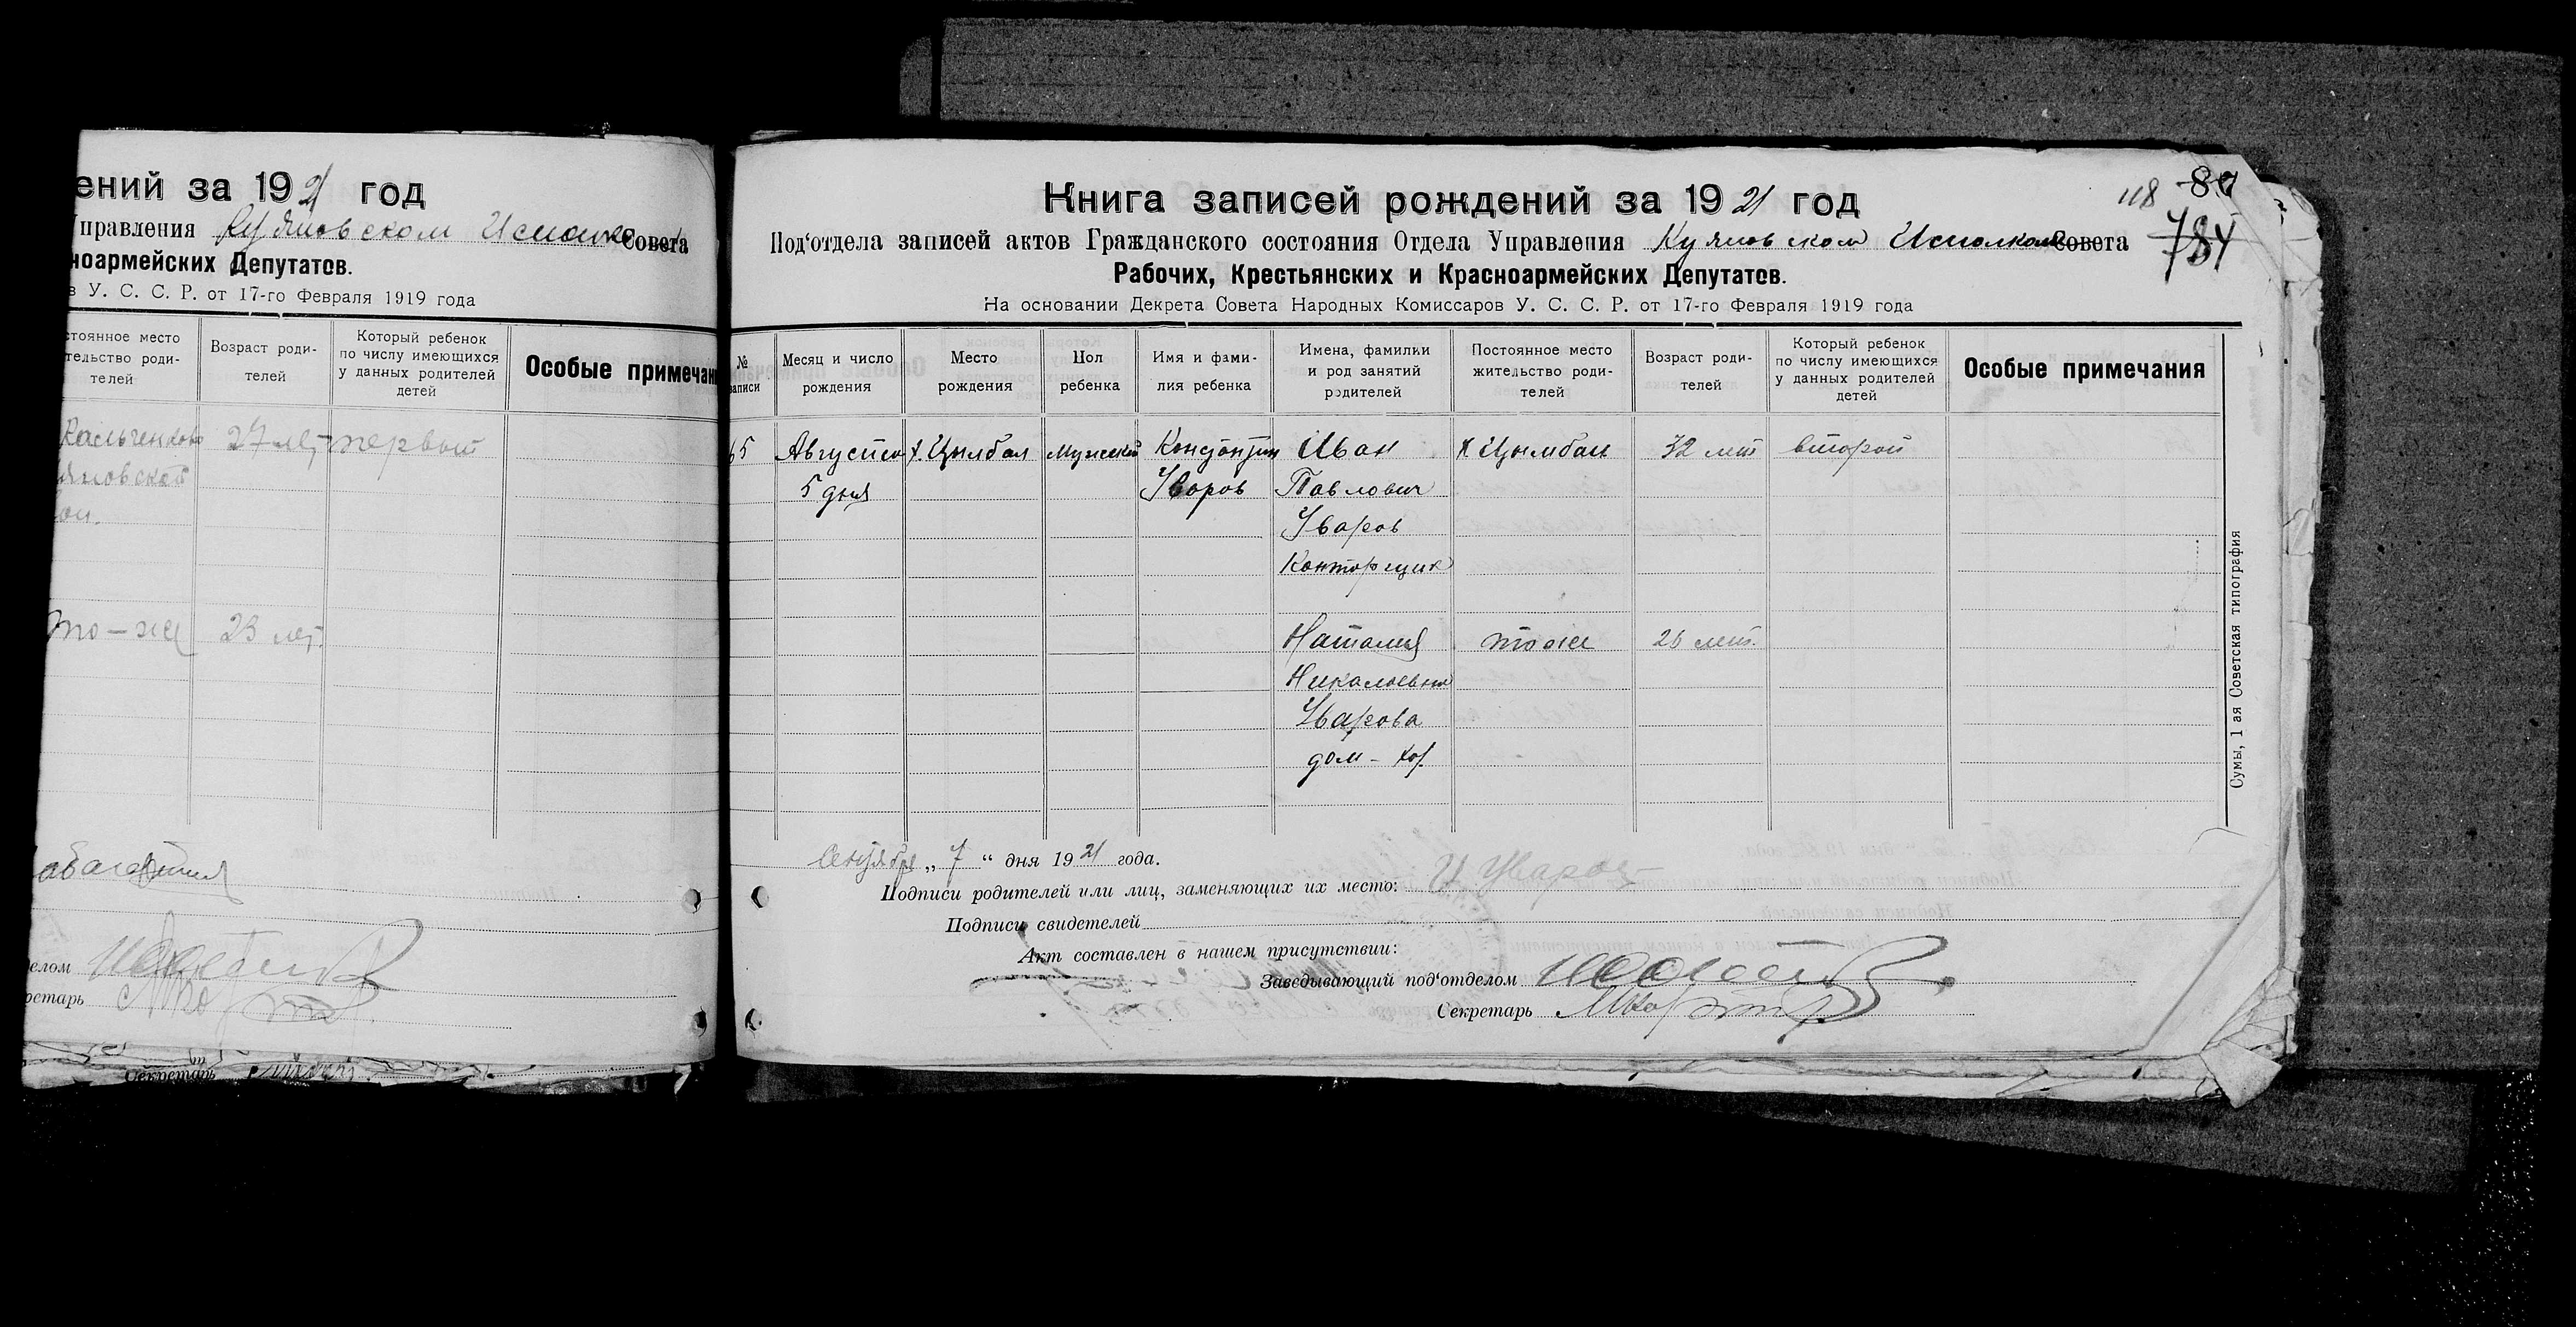 ений за 1921 год
Управления Куяновском Исполком Совета
ноармейских Депутатов.
в У. С. С. Р. от 17-го Февраля 1919 года
стоянное место
тельство роди-
телей
Возраст роди-
телей
Который ребенок
по числу имеющихся
у данных родителей
детей
Особые примечан
27 лет
первый
яновской
то-же
23 лет.
елом
ретарь
Секретарь
118 80
784
Книга записей рождений за 1921 год
Под'отдела записей актов Гражданского состояния Отдела Управления Куяновском Исполкома Совета
Рабочих, Крестьянских и Красноармейских Депутатов.
На основании Декрета Совета Народных Комиссаров У. С. С. Р. от 17-го Февраля 1919 года
№
записи
Месяц и число
рождения
Место
рождения
Пол
ребенка
Имя и фами-
лия ребенка
Имена, фамилии
и род занятий
родителей
Постоянное место
жительство роди-
телей
Возраст роди-
телей
Который ребенок
по числу имеющихся
у данных родителей
детей
Особые примечания
65
Августа
5 дня
х. Цымбал
Мужской
Константин
Уваров
Иван
Павлович
Уваров
Конторщик
х Цымбал
32 лет
второй
Наталия
Николаевна
Уварова
дом-хоз.
то же
26 лет.
Сентября „ 7 “ дня 1921 года.
Подписи родителей или лиц, заменяющих их место: И Уваров
Подписи свидетелей
Акт составлен в нашем присутствии:
Заведывающий под'отделом
Секретарь
Сумы, 1 ая Советская типография